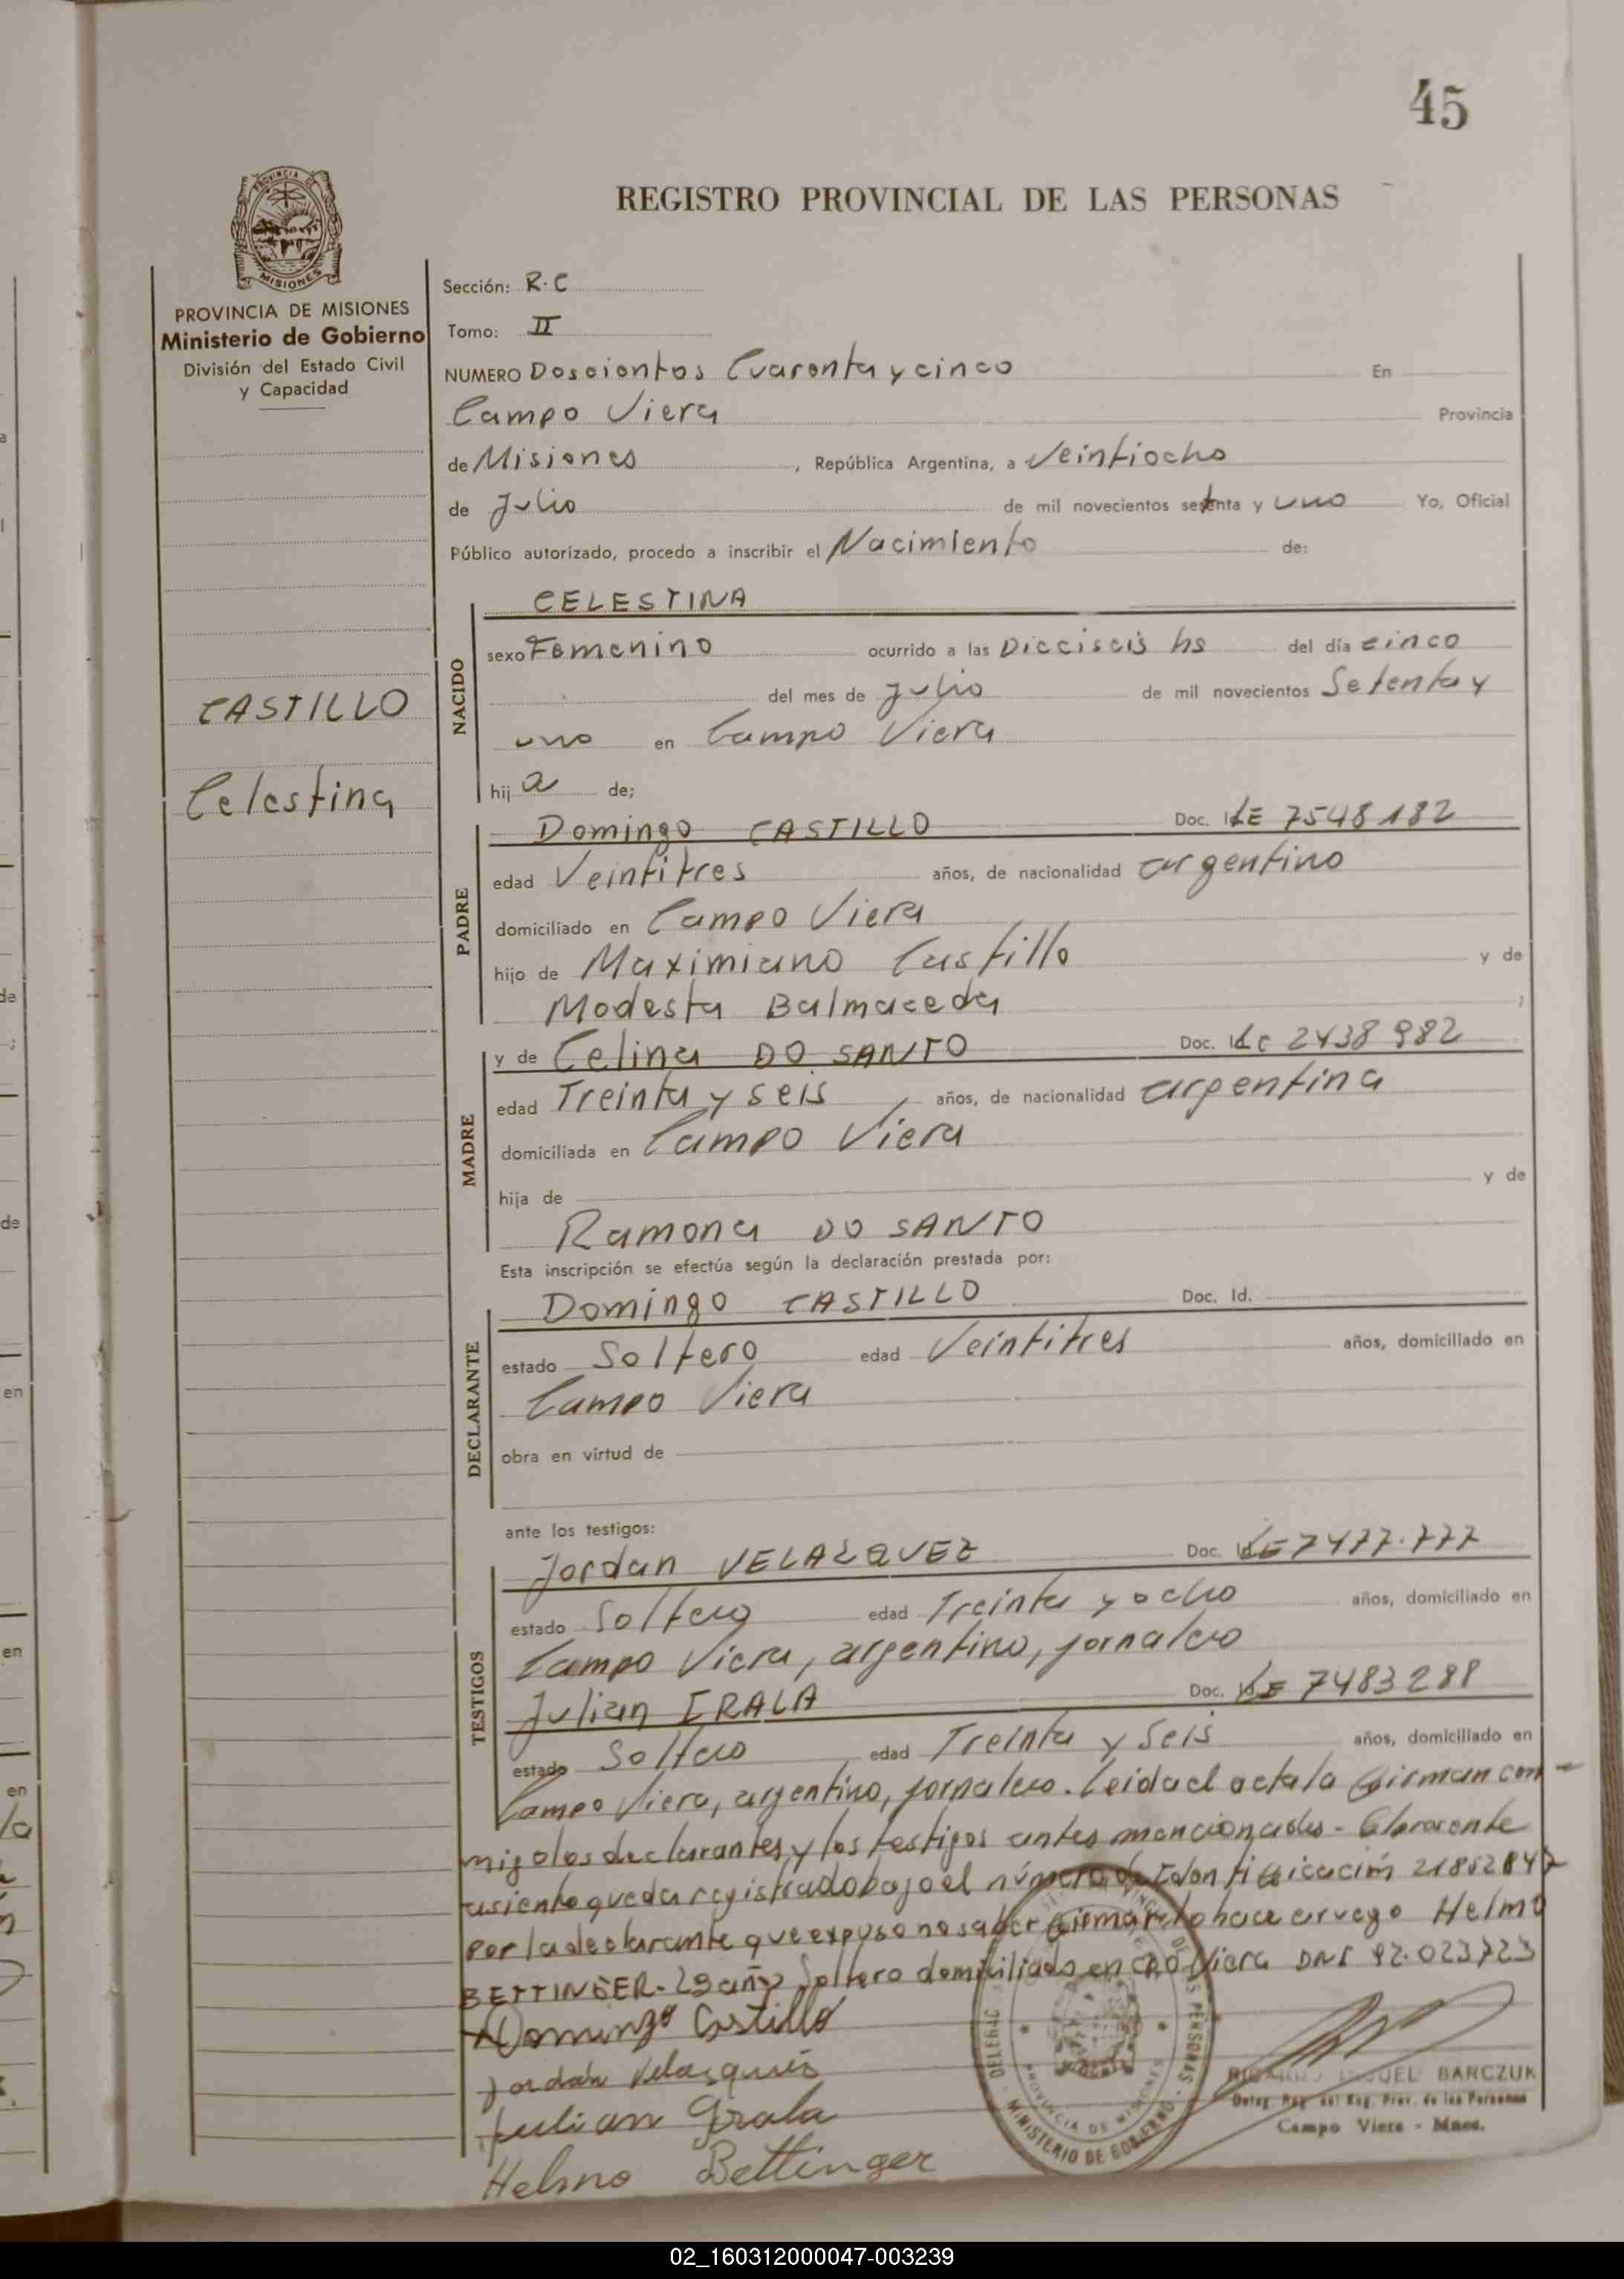 45
REGISTRO PROVINCIAL DE LAS PERSONAS
PROVINCIA DE MISIONES
Ministerio de Gobierno
División del Estado Civil
y Capacidad
CASTILLO
Celestina
Sección: R.C
Tomo: II
NUMERO Doscientos Cuarenta y cinco En
Campo Viera Provincia
de Misiones, República Argentina, a Veintiocho
de Julio de mil novecientos setenta y uno Yo, Oficial
Público autorizado, procedo a inscribir el Nacimiento de:
NACIDO
CELESTINA
sexo Femenino ocurrido a las Dieciseis hs del día cinco
del mes de Julio de mil novecientos Setenta y
uno en Campo Viera
hij a de;
PADRE
Domingo CASTILLO Doc. LE 7548182
edad Veintitres años, de nacionalidad argentino
domiciliado en Campo Viera
hijo de Maximiano Castillo y de
Modesta Balmaceda ;
MADRE
y de Celina DO SANTO Doc. LC 2438982
edad Treinta y seis años, de nacionalidad argentina
domiciliada en Campo Viera
hija de y de
Ramona DO SANTO
Esta inscripción se efectúa según la declaración prestada por:
DECLARANTE
Domingo CASTILLO Doc. Id.
estado Soltero edad Veintitres años, domiciliado en
Campo Viera
obra en virtud de
ante los testigos:
TESTIGOS
Jordan VELAZQUEZ Doc. Id. LE 7477.777
estado Soltero edad Treinta y ocho años, domiciliado en
Campo Viera, argentino, jornalero
Julian IRALA Doc. Id. LE 7483288
estado Soltero edad Treinta y Seis años, domiciliado en
Campo Viera, argentino, jornalero. Leida el acta la firman con-
migo los declarantes y los testigos antes mencionados - El presente
asiento queda registrado bajo el número de Identificación
Por la declarante que expuso no saber firmar lo hace a ruego Helmo
BETTINGER - 29 años Soltero domiciliado en Cpo Viera DNI 92.023723
Domingo Castillo
Jordán Velasques
Julian Irala
Helmo Bettinger
MINISTERIO DE GOBIERNO
PROVINCIA DE MISIONES
BARCZUK
Deleg. Reg. del Reg. Prov. de las Personas
Campo Viera - Mnes.
02_160312000047-003239